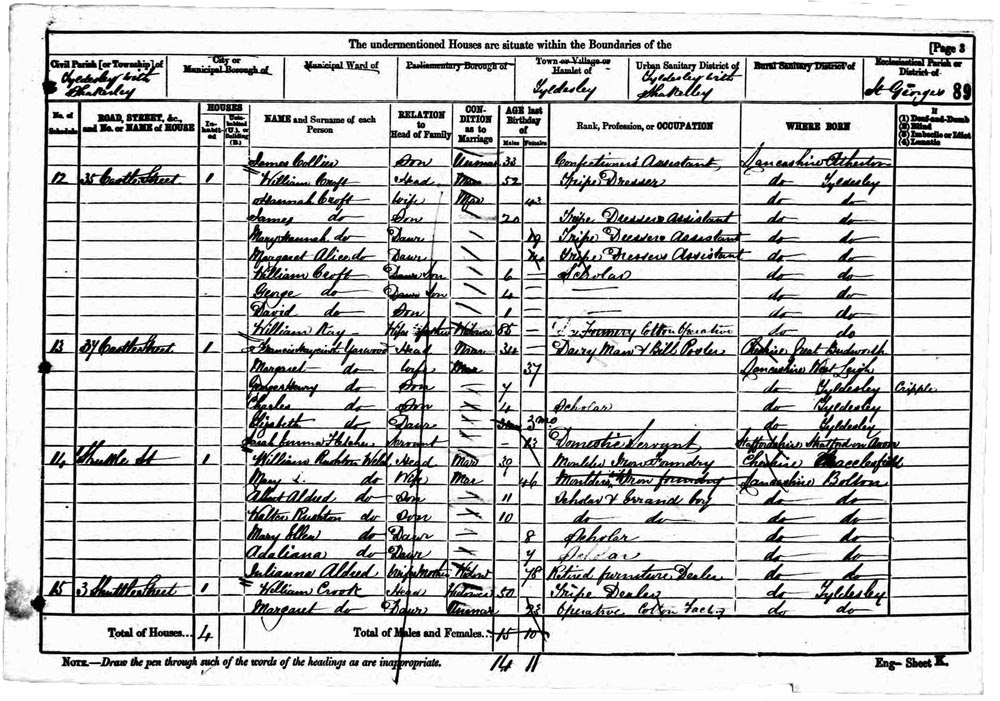 The undermentioned Houses are situate within the Boundaries of the [Page 3
Civil Parish [or Township] of City or Municipal Borough of Municipal Ward of Parliamentary Borough of Town or Village or Hamlet of Urban Sanitary District of Rural Sanitary District of Ecclesiastical Parish or District of
Tyldesley with Shakerley Tyldesley Tyldesley with Shakerley St Georges 89
No. of Schedule ROAD, STREET, &c., and No. or NAME of HOUSE HOUSES Inhabited Uninhabited (U.), or Building (B.) NAME and Surname of each Person RELATION to Head of Family CONDITION as to Marriage AGE last Birthday of Males Females Rank, Profession, or OCCUPATION WHERE BORN If (1) Deaf-and-Dumb (2) Blind (3) Imbecile or Idiot (4) Lunatic
James Collier Son Unmar 33 Confectioner's Assistant Lancashire Atherton
12 35 Castle Street 1 William Croft Head Mar 52 Tripe Dresser do Tyldesley
Hannah Croft Wife Mar 43 do do
James do Son 20 Tripe Dressers Assistant do do
Mary Hannah do Daur 19 Tripe Dressers Assistant do do
Margaret Alice do Daur Tripe Dressers Assistant do do
William Croft Son 6 Scholar do do
George do Son 4 do do
David do Son 1 do do
William Ray Wifes Widower 85 Formery Cotton Operative do do
13 37 Castle Street 1 Yarwood Head Mar 34 Dairy Man & Bill Poster Cheshire Great Budworth
Margaret do Wife Mar 37 Lancashire West Leigh
George Henry do Son 7 do Tyldesley Cripple
Charles do Son 4 Scholar do Tyldesley
Elizabeth do Daur 3 mo do Tyldesley
Sarah Emma Fletcher Servant 13 Domestic Servant Staffordshire Stratford on Avon
14 Shuttle St 1 William Rushton Welch Head Mar 39 Moulder Iron Foundry Cheshire Macclesfield
Mary do Wife Mar 46 Moulders Iron foundry Lancashire Bolton
Albert Aldred do Son 11 Scholar & Errand boy do do
Walter Rushton do Son 10 do do do do
Mary Ellen do Daur 8 Scholar do do
Adaliana do Daur 7 Scholar do do
Julianna Aldred Wifes Mother Widow 78 Retired furniture Dealer do do
15 3 Shuttle Street 1 William Crook Head Widower 50 Tripe Dealer do Tyldesley
Margaret do Daur Unmar 23 Operative Cotton Factory do do
Total of Houses... 4 Total of Males and Females... 15 10
14 11
NOTE.—Draw the pen through such of the words of the headings as are inappropriate. Eng— Sheet K.